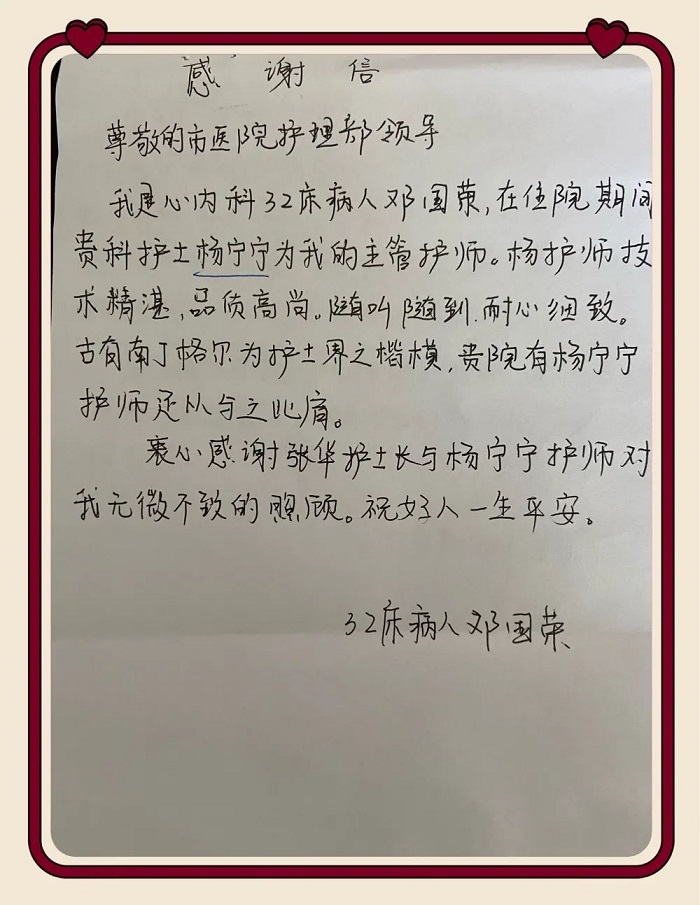 感谢信
尊敬的市医院护理部领导
我是心内科32床病人邓国荣,在住院期间
贵科护士杨宁宁为我的主管护师。杨护师技
术精湛,品质高尚。随叫随到.耐心细致。
古有南丁格尔为护士界之楷模,贵院有杨宁宁
护师还从与之比肩。
衷心感谢张华护士长与杨宁宁护师对
我无微不致的照顾。祝好人一生平安。
32床病人邓国荣